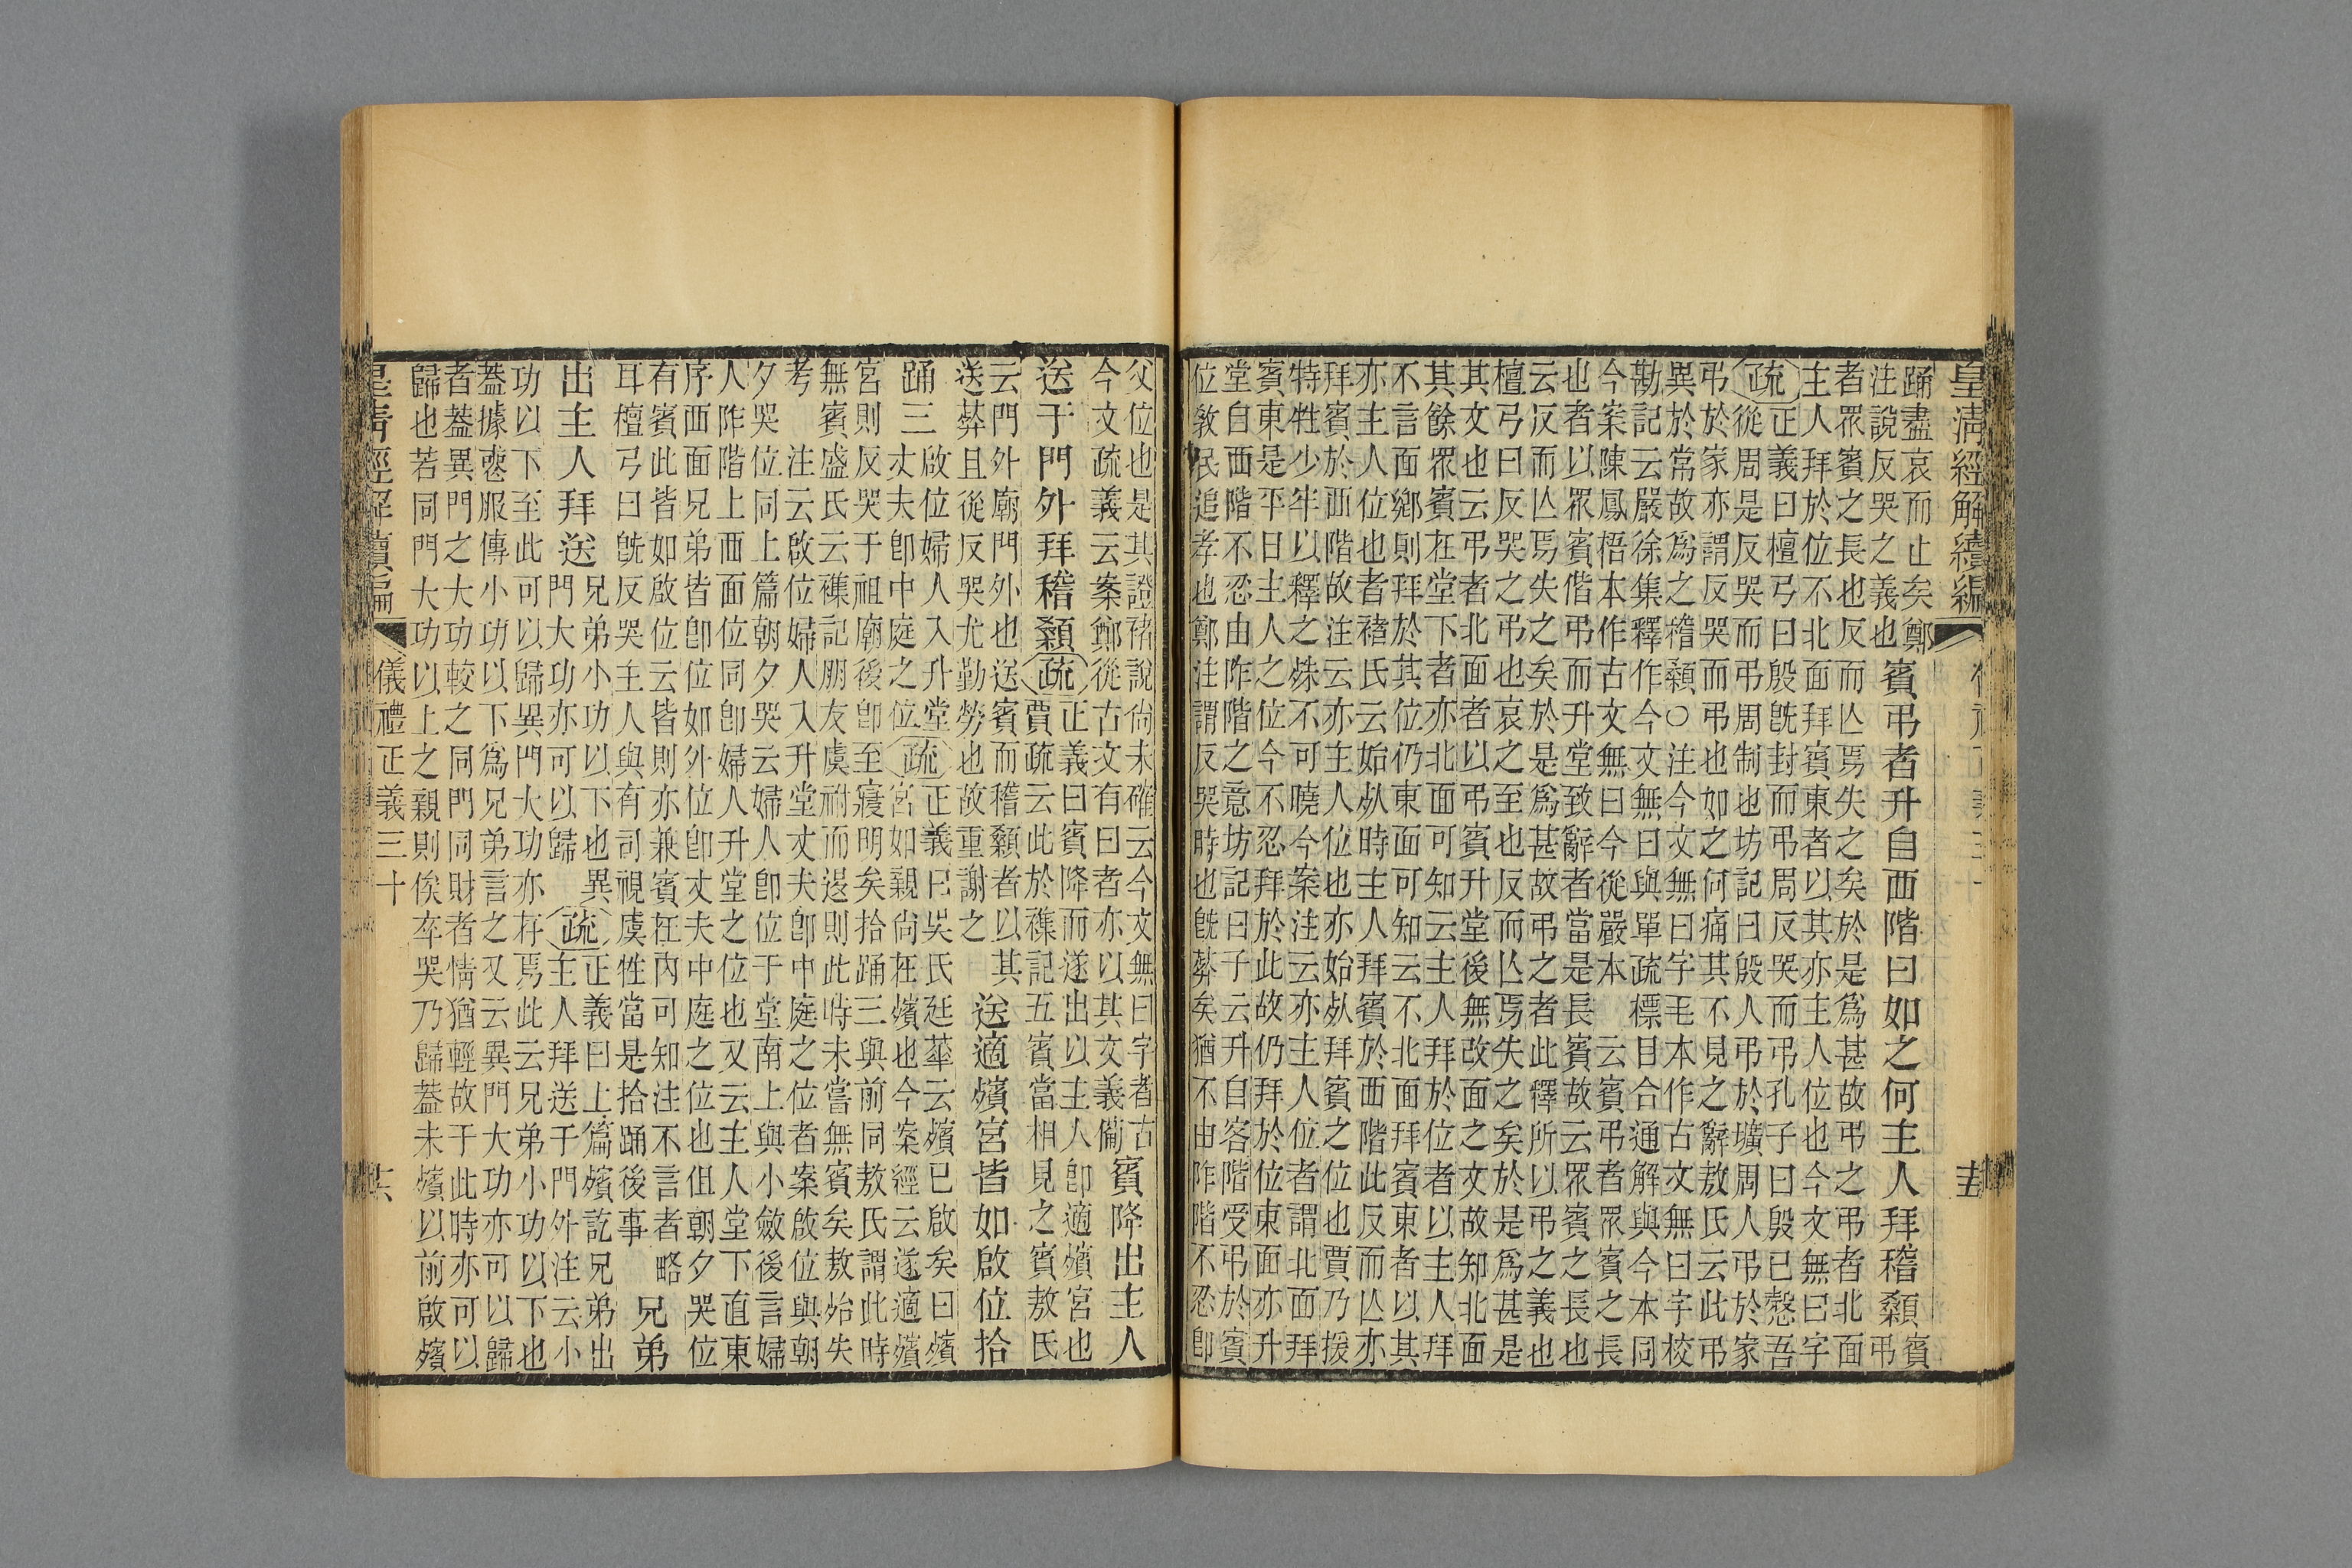 皇清經解續編
踊盡哀而止矣鄭
注說反哭之義也
賓弔者升自西階曰如之何主人拜稽顙
賓
弔
者眾賓之長也反而亾焉失之矣於是為甚故弔之弔者北面
主人拜於位不北面拜賓東者以其亦主人位也今文無曰字
疏
正義曰檀弓曰殷既封而弔周反哭而弔孔子曰殷已慤吾
從周是反哭而弔周制也坊記曰殷人弔於壙周人弔於家
弔於家亦謂反哭而弔也如之何痛其不見之辭敖氏云此弔
異於常故為之稽顙○注今文無曰字毛本作古文無曰字校
勘記云嚴徐集釋作今文無曰與單疏標目合通解與今本同
今案陳鳳梧本作古文無曰今從嚴本　云賓弔者眾賓之長
也者以眾賓偕弔而升堂致辭者當是長賓故云眾賓之長也
云反而亾焉失之矣於是為甚故弔之者此釋所以弔之義也
檀弓曰反哭之弔也哀之至也反而亾焉失之矣於是為甚是
其文也云弔者北面者以弔賓升堂後無改面之文故知北面
其餘眾賓在堂下者亦北面可知云主人拜於位者以主人拜
不言面鄉則拜於其位仍東面可知云不北面拜賓東者以其
亦主人位也者褚氏云始死時主人拜賓於西階此反而亾亦
拜賓於西階故注云亦主人位也亦始死拜賓之位也賈乃援
特牲少牢以釋之殊不可曉今案注云亦主人位者謂北面拜
賓東是平日主人之位今不忍拜於此故仍拜於位東面亦升
堂自西階不忍由阼階之意坊記曰子云升自客階受弔於賓
位教民追孝也鄭注謂反哭時也既葬矣猶不由阼階不忍即
父位也是其證褚說尚未確云今文無曰字者古
今文疏義云案鄭從古文有曰者亦以其文義備
賓降出主人
送于門外拜稽顙
疏
正義曰賓降而遂出以主人即適殯宮也
賈疏云此於襍記五賓當相見之賓敖氏
云門外廟門外也送賓而稽顙者以其
送葬且從反哭尤勤勞也故重謝之
送適殯宮皆如啟位拾
踊三
啟位婦人入升堂
丈夫即中庭之位
疏
正義曰吳氏廷華云殯已啟矣曰殯
宮如親尚在殯也今案經云遂適殯
宮則反哭于祖廟後即至寢明矣拾踊三與前同敖氏謂此時
無賓盛氏云襍記朋友虞祔而退則此時未嘗無賓矣敖始失
考　注云啟位婦人入升堂丈夫即中庭之位者案啟位與朝
夕哭位同上篇朝夕哭云婦人即位于堂南上與小斂後言婦
人阼階上西面位同即婦人升堂之位也又云主人堂下直東
序西面兄弟皆即位如外位即丈夫中庭之位也但朝夕哭位
有賓此皆如啟位云皆則亦兼賓在內可知注不言者略
耳檀弓曰既反哭主人與有司視虞牲當是拾踊後事
兄弟
出主人拜送
兄弟小功以下也異
門大功亦可以歸
疏
正義曰上篇殯訖兄弟出
主人拜送于門外注云小
功以下至此可以歸異門大功亦存焉此云兄弟小功以下也
蓋據喪服傳小功以下為兄弟言之又云異門大功亦可以歸
者蓋異門之大功較之同門同財者情猶輕故于此時亦可以
歸也若同門大功以上之親則俟卒哭乃歸蓋未殯以前啟殯
皇清經解續編
儀禮正義三十